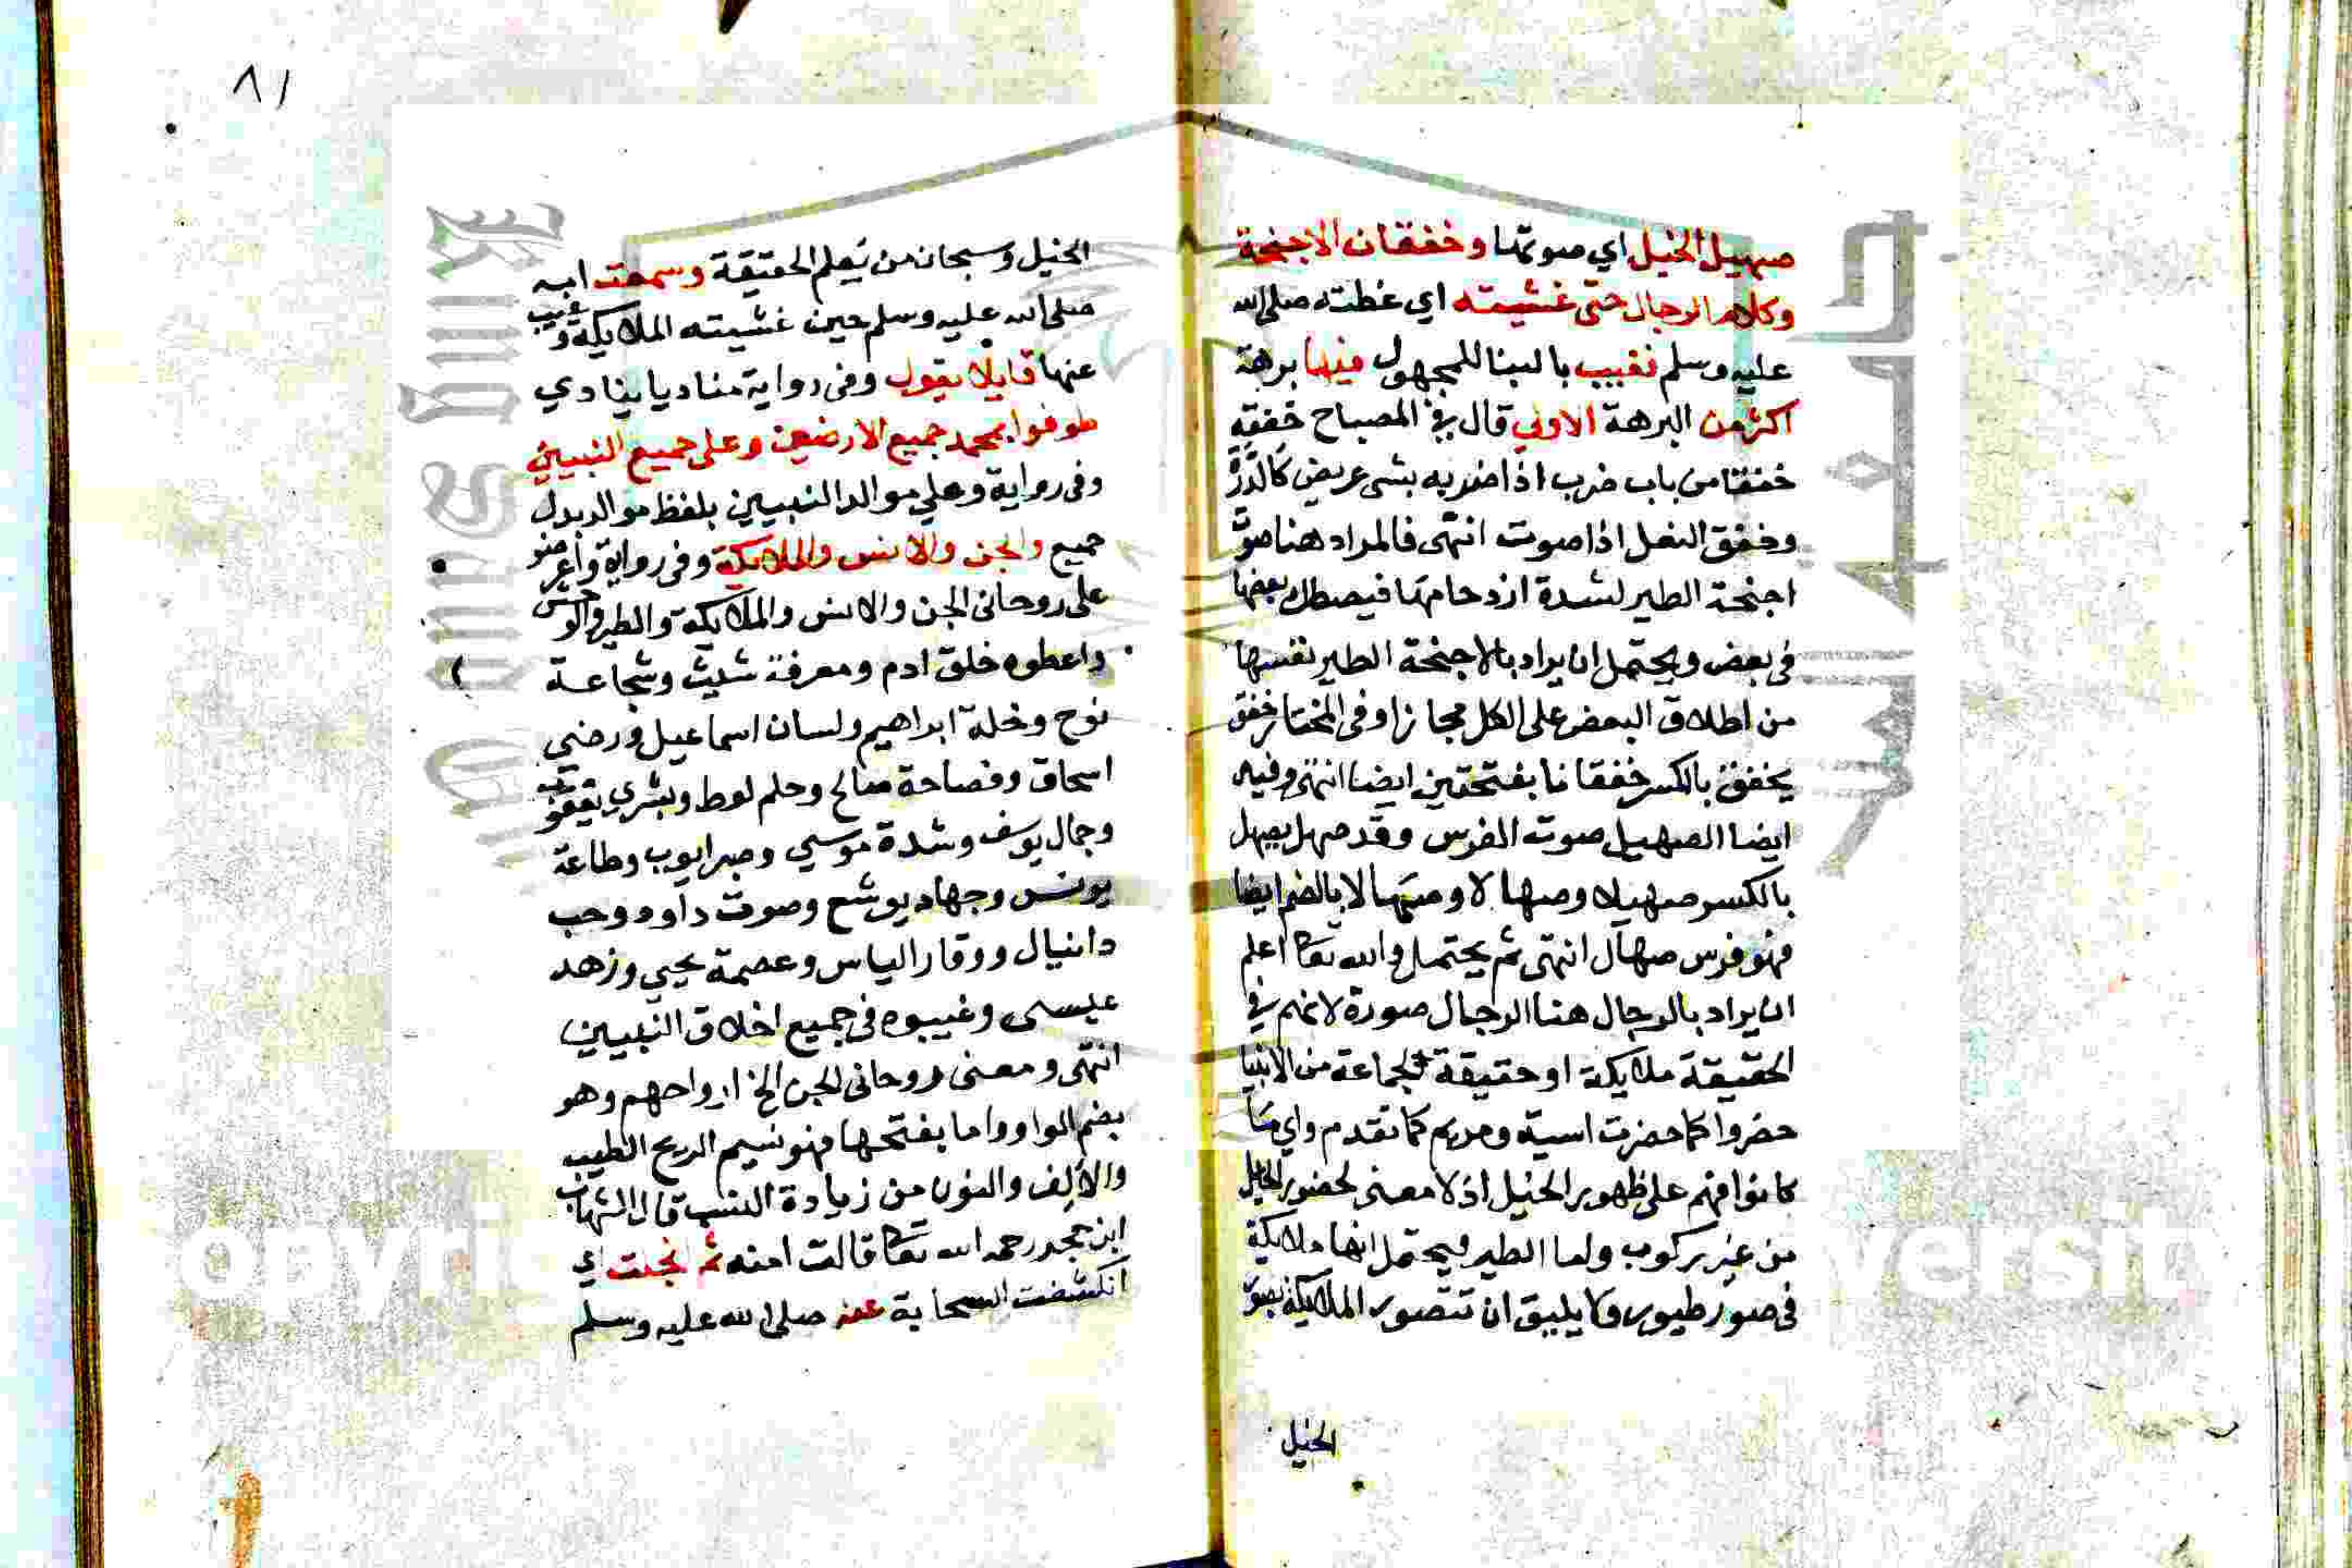 صهيل الخيل اي صوتها وخفقان الاجنحة
وكلام الرجال حتى غشيته اي غطته صلى الله
عليه وسلم فغيب بالبنا للمجهول فيها برهة
اكثر من البرهة الاولي قال في المصباح خفقه
خفقا من باب ضرب اذا ضربه بشي عريض كالدرة
وخفق النعل اذا صوت انتهى فالمراد هنا صوت
اجنحة الطير لشدة ازدحامها فيصطك بعضها
في بعض ويحتمل ان يراد بالاجنحة الطير نفسها
من اطلاق البعض على الكل مجازا وفي المختار خفق
يخفق بالكسر خفقانا بفتحتين ايضا انتهى وفيه
ايضا الصهيل صوت الفرس وقد صهل يصهل
بالكسر صهيلا وصهالا بالضم ايضا
فهو فرس صهال انتهى ثم يحتمل والله تعا اعلم
ان يراد بالرجال هنا الرجال صورة لانهم في
الحقيقة ملايكة او حقيقة لجماعة من الانبيا
حضروا كما حضرت اسية ومريم كما تقدم واي ما
كانوا فهم على ظهور الخيل اذ لا معنى لحضور الخيل
من غير ركوب واما الطير فيحتمل انها ملايكة
في صور طيور ولا يليق ان تتصور الملايكة بصور
الخيل
٨١
الخيل وسبحان من يعلم الحقيقة وسمعت امه
صلى الله عليه وسلم حين غشيته الملايكة وغيب
عنها قايلا يقول وفي رواية مناديا ينادي
طوفوا بمحمد جميع الارضين وعلى جميع النبيين
وفي رواية وعلي موالد النبيين بلفظ موالد بدل
جميع والجن والانس والملايكة وفي رواية واعرضوه
على روحاني الجن والانس والملايكة والطير والوحش
واعطوه خلق ادم ومعرفة شيث وشجاعة
نوح وخلة ابراهيم ولسان اسماعيل ورضي
اسحاق وفصاحة صالح وحلم لوط وبشري يعقوب
وجمال يوسف وشدة موسي وصبر ايوب وطاعة
يونس وجهاد يوشع وصوت داود وحب
دانيال ووقار الياس وعصمة يحيي وزهد
عيسى وغيبوه في جميع اخلاق النبيين
انتهى ومعنى روحاني الجن الخ ارواحهم وهو
بضم الواو واما بفتحها فهو نسيم الريح الطيب
والالف والنون من زيادة النسب قال الشهاب
ابن حجر رحمه الله تعا قالت امنه ثم انجلت اي
انكشفت السحابة عنه صلى الله عليه وسلم